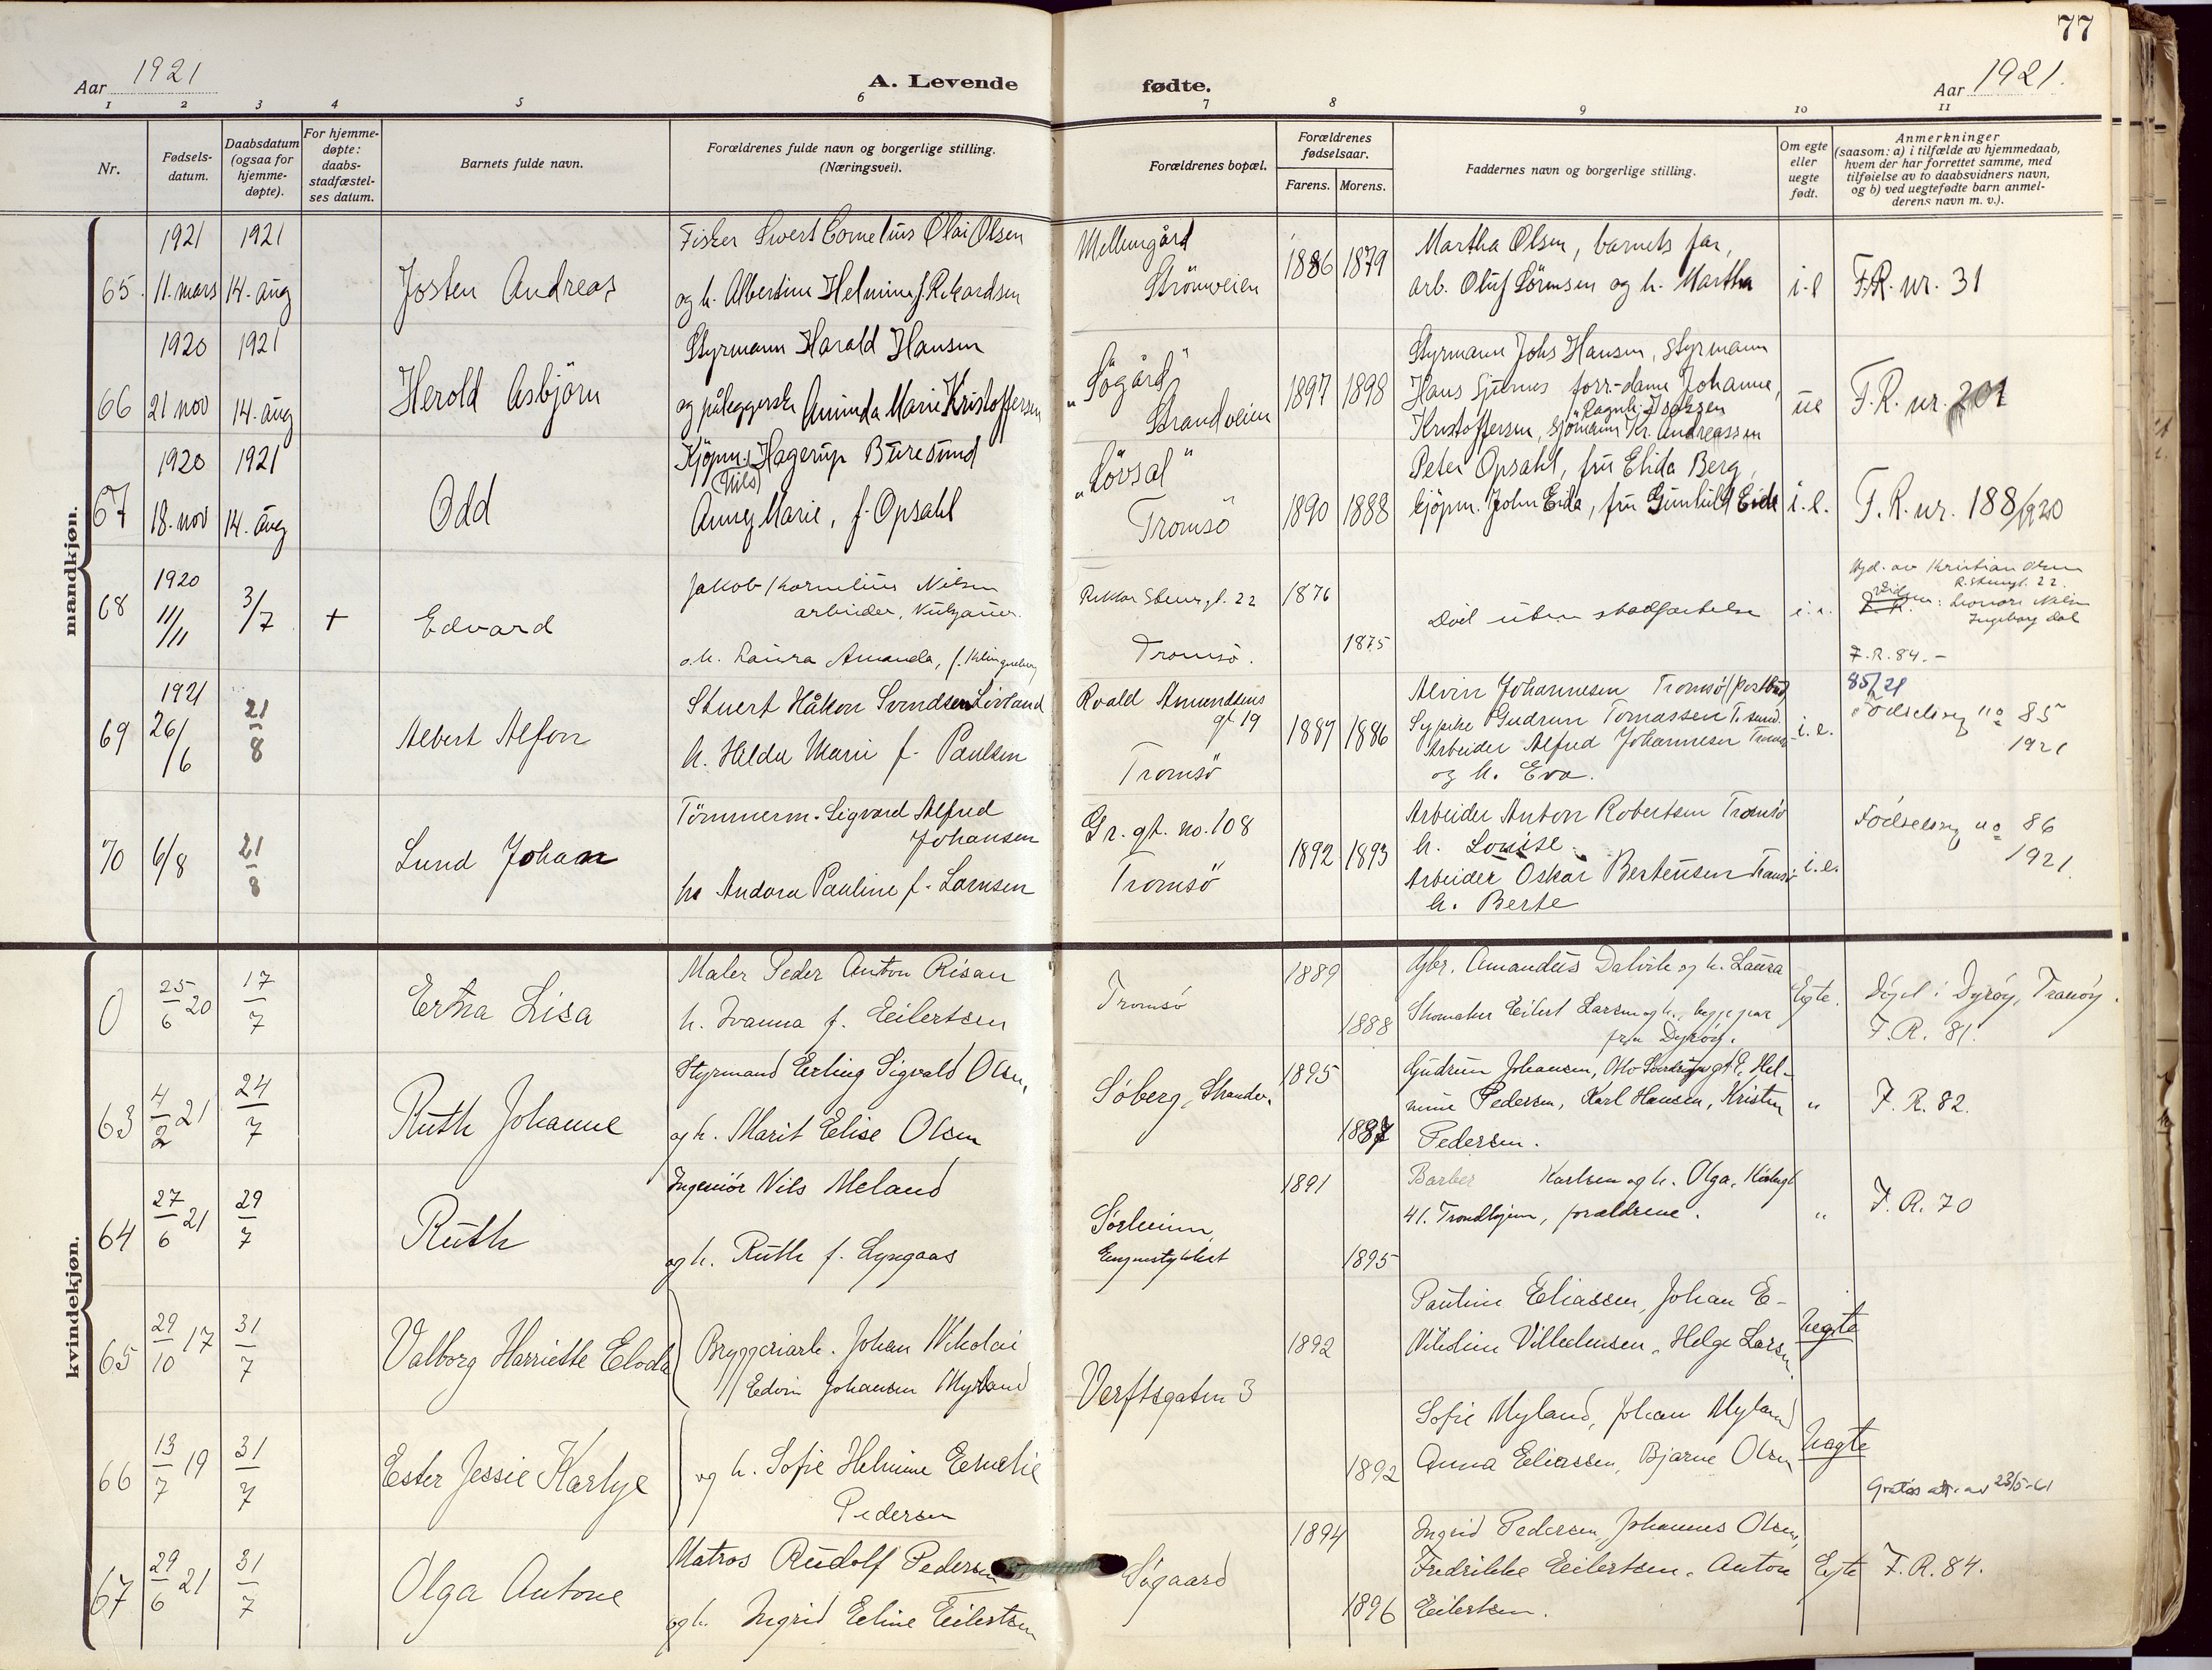 77
Aar 1921
A. Levende
fødte.
Aar 1921.
1 2 3 4 5 6 7 8 9 10 11
Nr.
Fødsels-
datum.
Daabsdatum
(ogsaa for
hjemme-
døpte).
For hjemme-
døpte:
daabs-
stadfæstel-
ses datum.
Barnets fulde navn.
Forældrenes fulde navn og borgerlige stilling.
(Næringsvei).
Forældrenes bopæl.
Forældrenes
fødselsaar.
Farens. Morens.
Faddernes navn og borgerlige stilling.
Om egte
eller
uegte
født.
Anmerkninger
(saasom: a) i tilfælde av hjemmedaab,
hvem der har forrettet samme, med
tilføielse av to daabsvidners navn,
og b) ved uegtefødte barn anmel-
derens navn m. v.).
mandkjøn.
65. 1921 11. mars 1921 14. aug
Josten Andreas
Fisker Sivert Cornelius Olai Olsen
og h. Albertine Helmine f. Rikardsen
Mellemgård
Strömveien
1886 1879
Martha Olsen, barnets far,
arb. Oluf Sörensen og h. Martha
i-e
F.R. nr. 31
66 1920 21 nov 1921 14. aug
Herold Asbjörn
Styrmann Harald Hansen
og pålæggerske Aminda Marie Kristoffersen
"Sögård"
Strandveien
1897 1898
Styrmann Johs Hansen, styrmann
Hans Sjursnes forr.-dame Johanne,
Ragnh. Isaksen
Kristoffersen, sjömann Kr. Andreassen
ue
F.R. nr. 201
67 1920 18. nov 1921 14. aug
Odd
Kjöpm. Hagerup Buresund
(Nils)
Anny Marie, f. Opsahl
"Lövsal"
Tromsö
1890 1888
Peter Opsahl, fru Elida Berg,
kjöpm. John Eida, fru Gunhild Eide
i.e.
F.R. nr. 188/920
68 1920 11/11 3/7 +
Edvard
Jakob Kornelius Nilsen
arbeider,
o.h. Laura Amanda, f. Klingenberg
Rektor Steens gt. 22
Tromsö.
1876
1875
Död uten stadfæstelse
i.e.
Hjd. av Kristian Olsen
R. Steensgt. 22.
Vidner: Leonore Nilsen
Ingeborg Dal
F.R. 84.-
69 1921 26/6 21/8
Albert Alfon
Stuert Håkon Svendsen Lövland
h. Hilda Marie f. Paulsen
Roald Amundsens
gt 19
Tromsö
1887 1886
Alvin Johannesen Tromsö (Postbud)
Sypike Gudrun Tomassen T. sund.
Arbeider Alfred Johannesen Tromsö
og h. Eva.
i.e.
85/21
Födselsreg no 85
1921
70 6/8 21/8
Lund Johan
Tömmerm. Sigvard Alfred
Johansen
h. Andora Pauline f. Larnsen
Gr. gt. no. 108
Tromsö
1892 1893
Arbeider Anton Robertsen Tromsö
h. Louise
Arbeider Oskar Bertensen Tromsö
h. Berte
i.e.
Födselsreg no 86
1921.
kvindekjøn.
0 25/6 20 17/7
Erna Lisa
Maler Peder Anton Risan
h. Ivanna f. Eilertsen
Tromsö
1889
1888
Gbr. Amandus Dalvik og h. Laura
Skomaker Eilert Larsen og h., begge par
fra Dyröy.
Egte.
Döpt i Dyröy, Tranöy.
F.R. 81.
63 4/2 21 24/7
Ruth Johanne
Styrmand Erling Sigvald Olsen,
og h. Marit Elise Olsen
Söberg, Strandv.
1895
1887
Gudrun Johansen, Hel-
mine Pedersen, Karl Hansen, Kristen
Pedersen.
"
F.R. 82.
64 27/6 21 29/7
Ruth
Ingeniör Nils Meland
og h. Ruth f. Lyngaas
Sörheim,
1891
1895
Barber Karlsen og h. Olga,
41. Trondhjem, forældrene.
"
F.R. 70
65 29/10 17 31/7
Valborg Harriette Eloda
Bryggeriarb. Johan Nikolai
Edvin Johansen Myland
Verftsgaten 3
1892
Pauline Eliassen, Johan E-
Nikoline Villedensen, Helge Larsen,
Uegte
66 13/7 19 31/7
Ester Jessie Karlye
og h. Sofie Helmine Emelie
Pedersen
1892
Sofie Myland, Johan Myland
Anna Eliassen, Bjarne Olsen
Uegte
Gratis att. av 23/5-61
67 29/6 21 31/7
Olga Antone
Matros Rudolf Pedersen
og h. Ingrid Eline Eilertsen
Sögaard
1894
1896
Ingrid Pedersen, Johannes Olsen,
Fredrikke Eilertsen, Anton
Eilertsen.
Egte
F.R. 84.